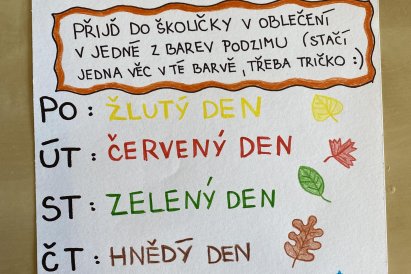 PŘIJĎ DO ŠKOLIČKY V OBLEČENÍ
V JEDNÉ Z BAREV PODZIMU (STAČÍ
JEDNA VĚC V TÉ BARVĚ, TŘEBA TRIČKO :)
PO: ŽLUTÝ DEN
ÚT: ČERVENÝ DEN
ST: ZELENÝ DEN
ČT: HNĚDÝ DEN